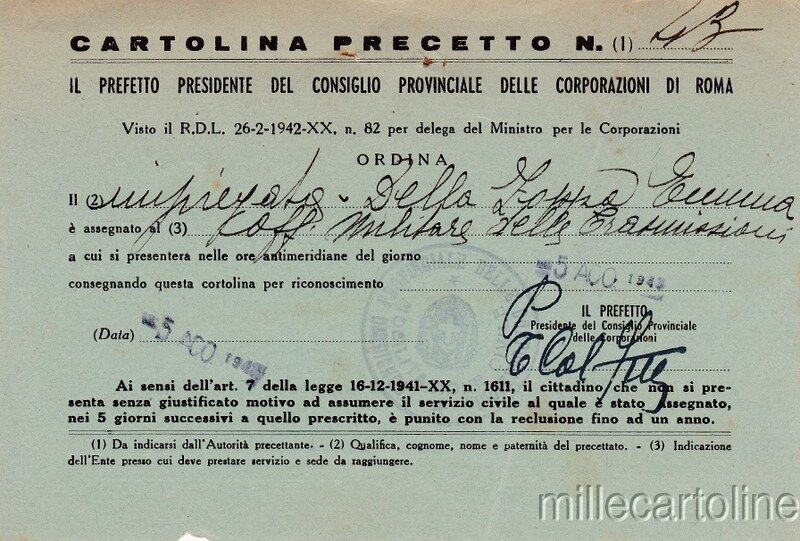 CARTOLINA PRECETTO N. (1)
IL PREFETTO PRESIDENTE DEL CONSIGLIO PROVINCIALE DELLE CORPORAZIONI DI ROMA
Visto il R.D.L. 26-2-1942-XX, n. 82 per delega del Ministro per le Corporazioni
ORDINA
Il (2) impiegata - Della Emma
è assegnato al (3) Militare delle Trasmissioni
a cui si presentera nelle ore antimeridiane del giorno -5 AGO 1943
consegnando questa cartolina per riconoscimento
IL PREFETTO
Presidente del Consiglio Provinciale
delle Corporazioni
(Data) -5 AGO. 1943
Ai sensi dell'art. 7 della legge 16-12-1941-XX, n. 1611, il cittadino che non si pre-
senta senza giustificato motivo ad assumere il servizio civile al quale è stato assegnato,
nei 5 giorni successivi a quello prescritto, è punito con la reclusione fino ad un anno.
(1) Da indicarsi dall'Autorità precettante. - (2) Qualifica, cognome, nome e paternità del precettato. - (3) Indicazione
dell'Ente presso cui deve prestare servizio e sede da raggiungere.
millecartoline